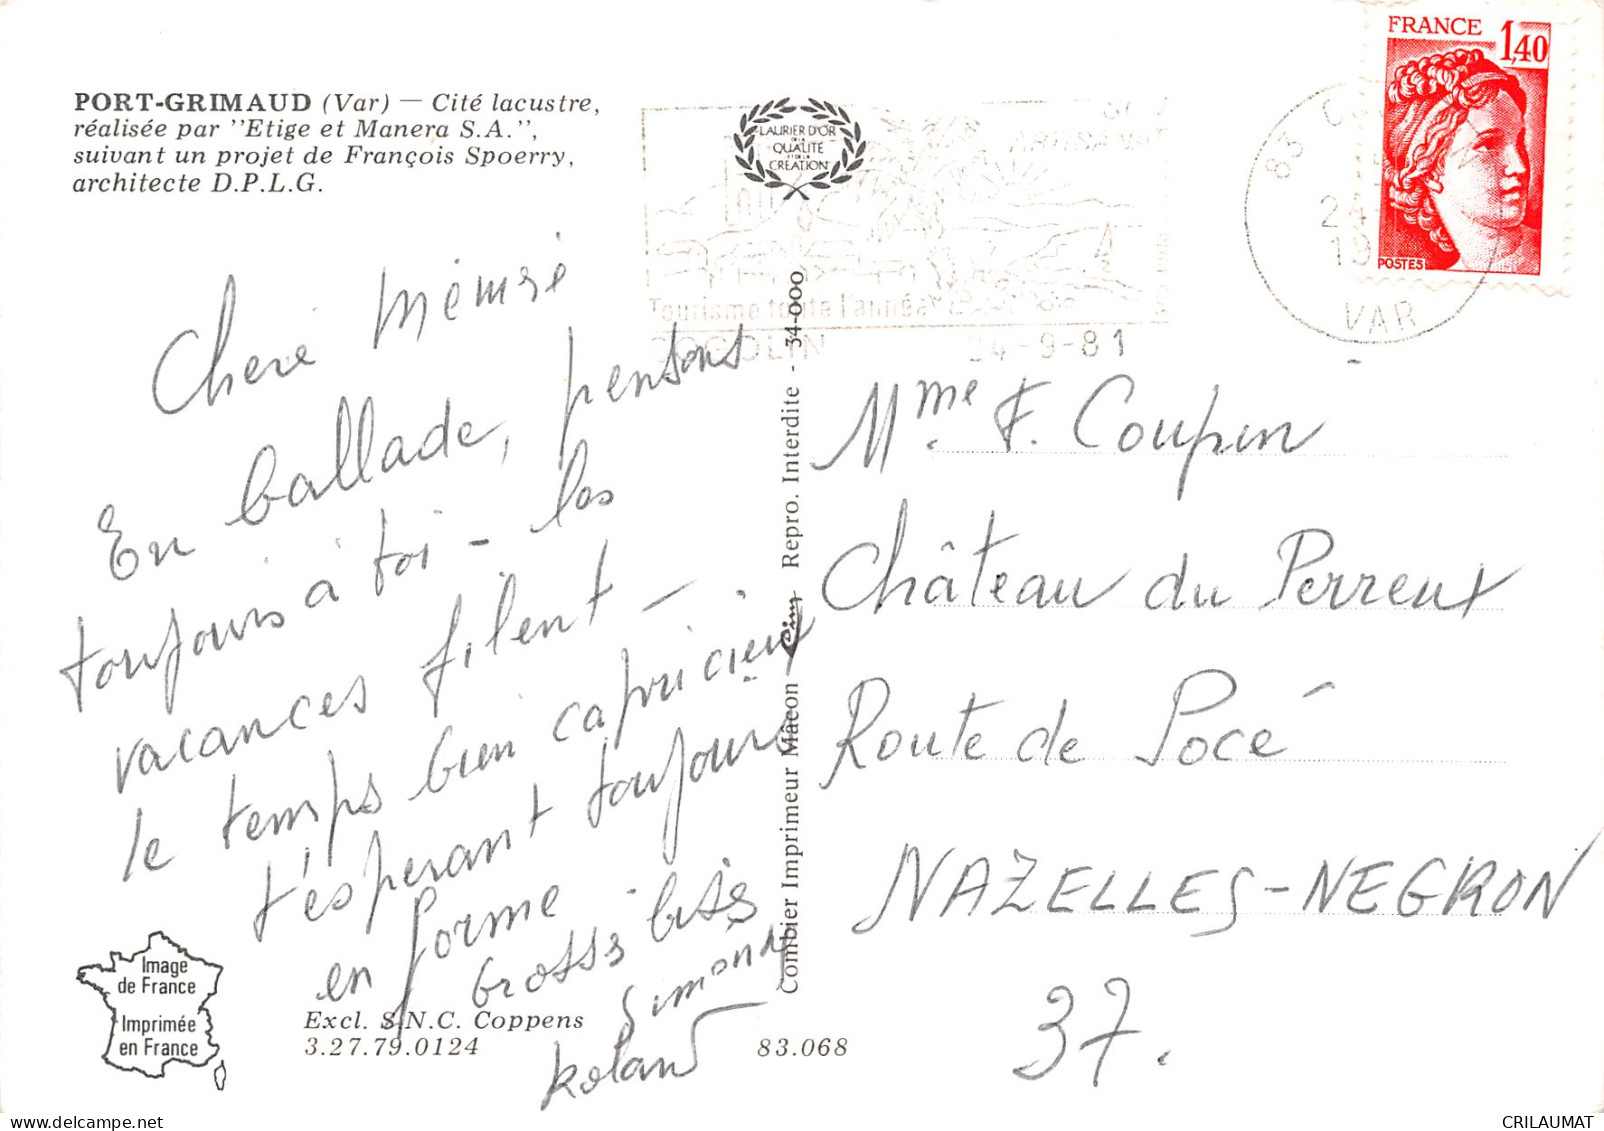 PORT-GRIMAUD (Var) — Cité lacustre,
réalisée par "Etige et Manera S.A.",
suivant un projet de François Spoerry,
architecte D.P.L.G.
LAURIER D'OR
DE LA
QUALITÉ
ET DE LA
CRÉATION
Tourisme toute l'année
COGOLIN 24-9-81
83
24
19
VAR
FRANCE 1,40
POSTES
Chere Mémsé
En ballade, pensons
toujours à toi - les
vacances filent -
le temps bien capricieux
t'esperant toujours
en forme
Grosses bises
Simone
Roland
Mme F. Coupen
Château du Perreux
Route de Pocé
NAZELLES-NEGRON
37.
Combier Imprimeur Mâcon Cim Repro. Interdite - 34-000
Image
de France
Imprimée
en France
Excl. S.N.C. Coppens
3.27.79.0124
83.068
CRILAUMAT